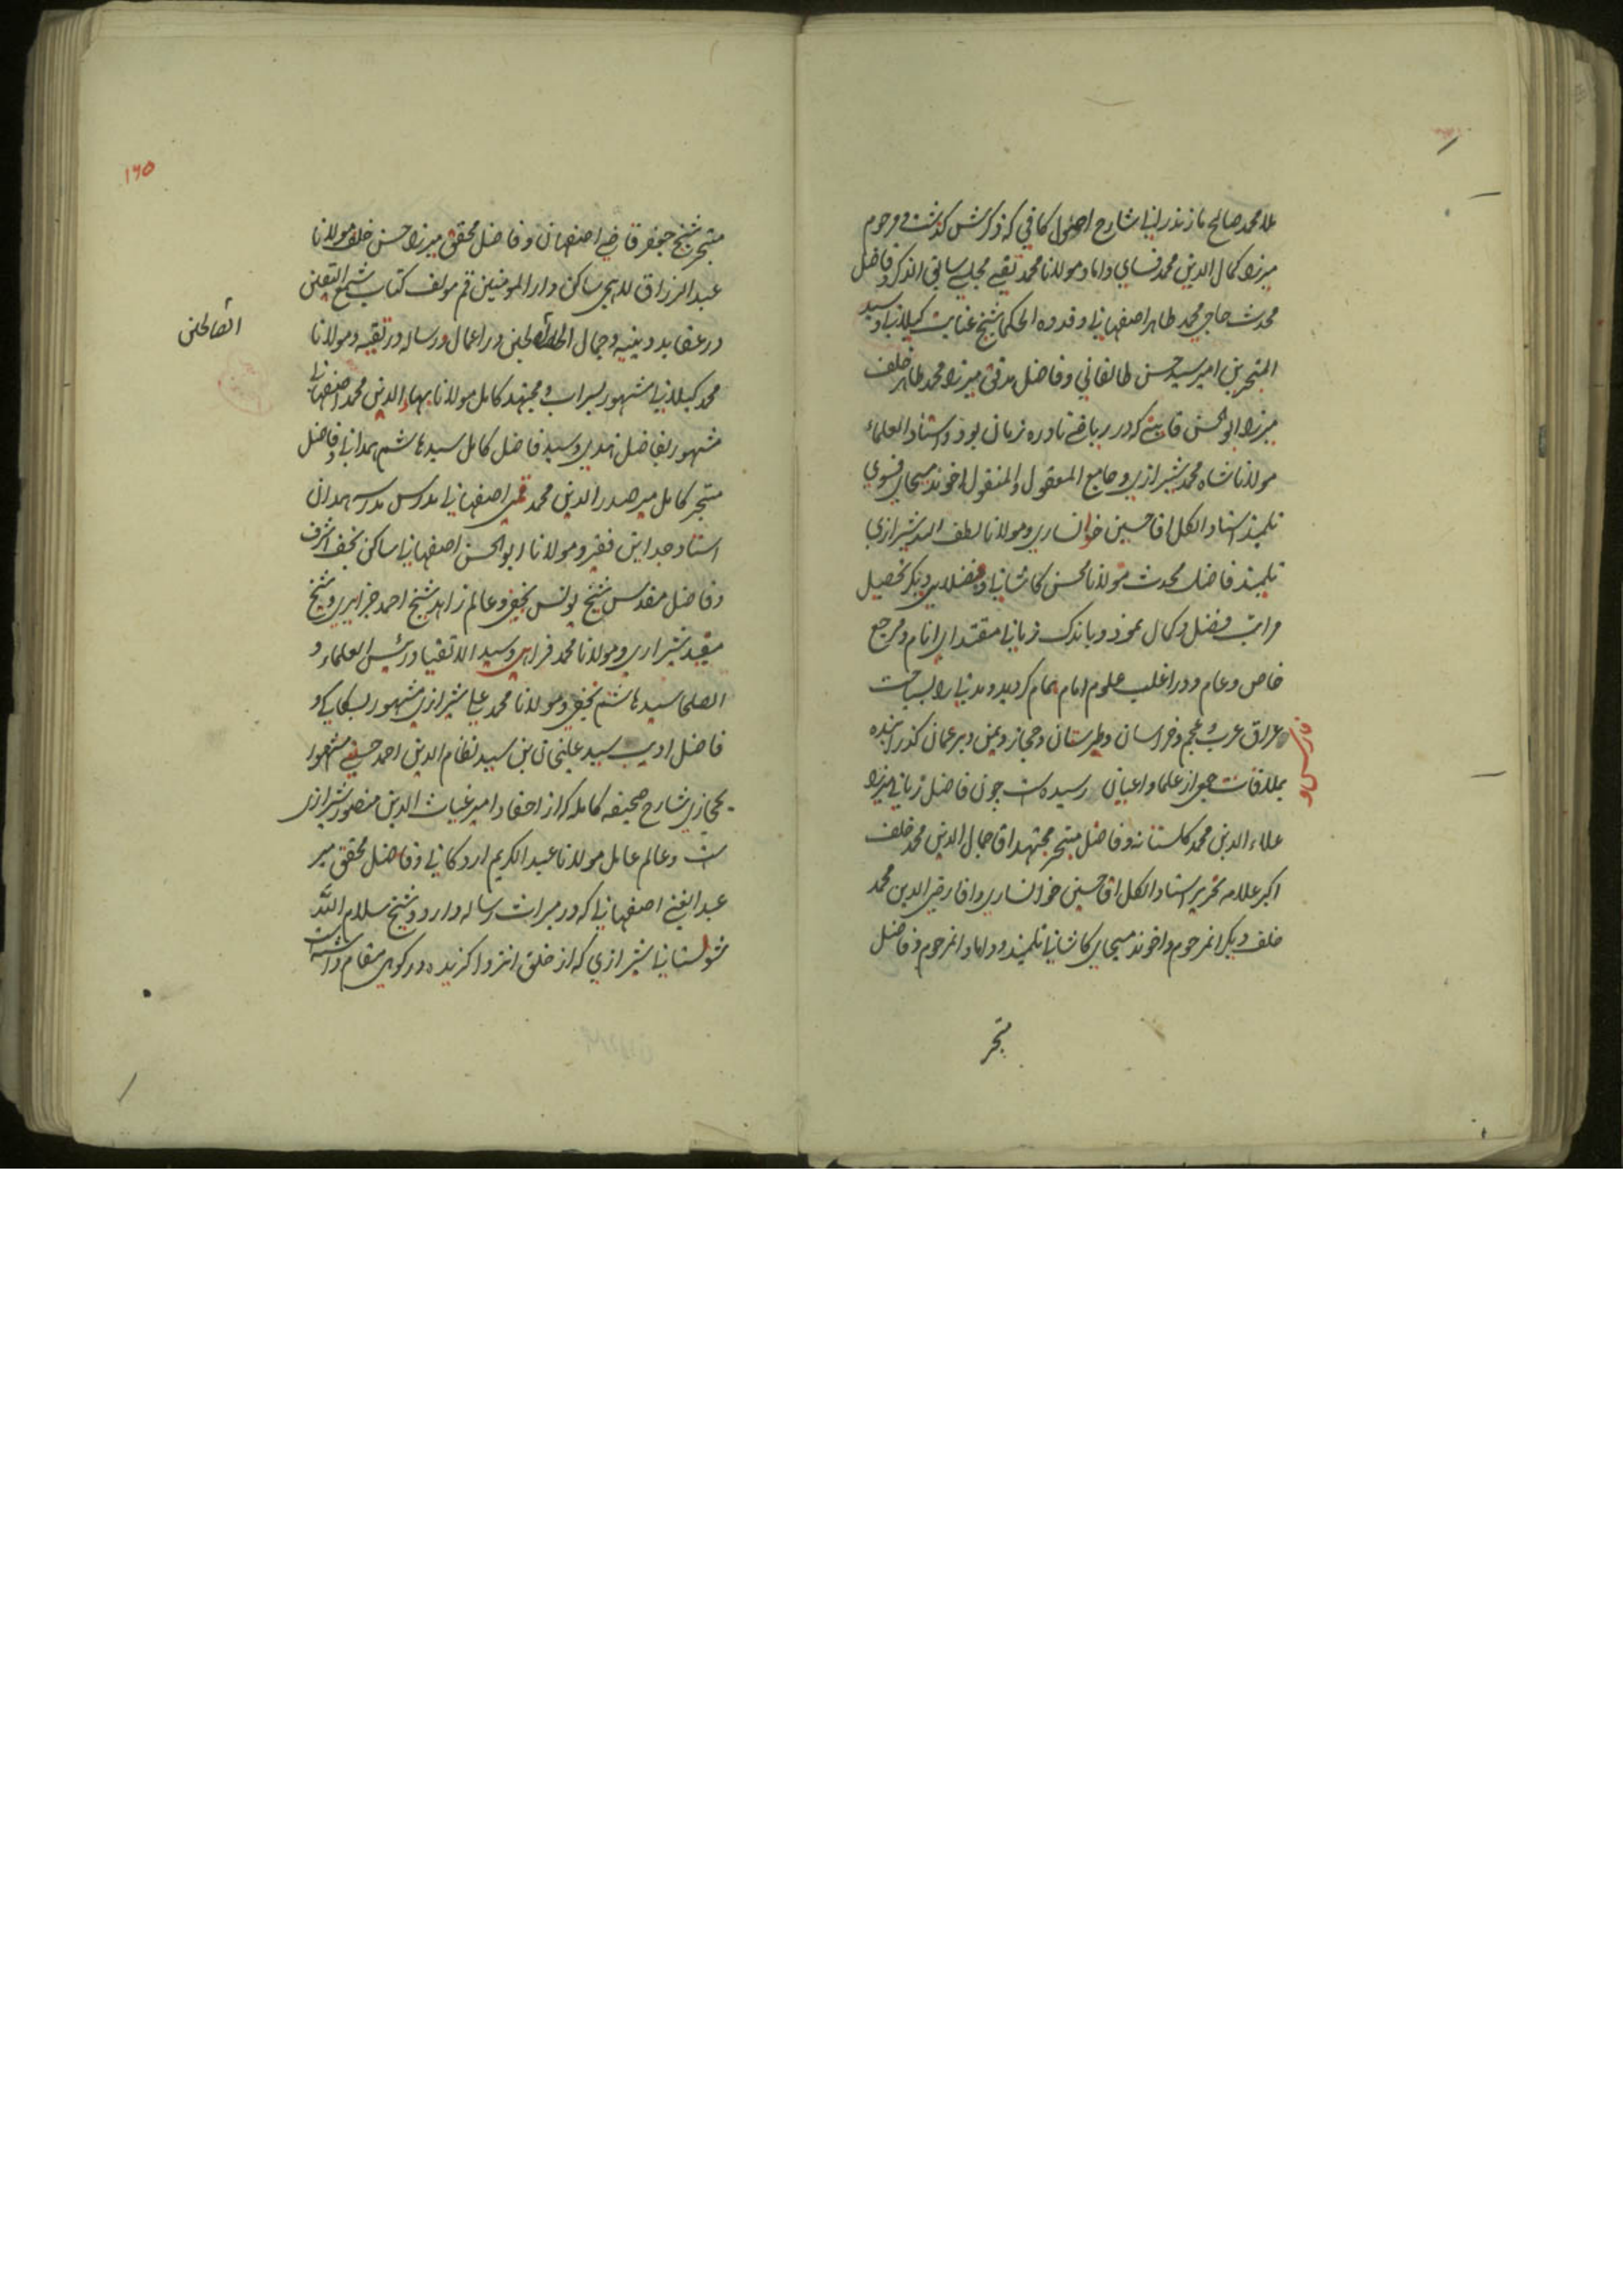 ملا محمد صالح مازندرانی شارح اصول کافی که ذکرش گذشت و مرحوم
میرزا کمال الدین محمد فسایی داماد مولانا محمد تقی مجلسی سابق الذکر و فاضل
محدث حاجی محمد طاهر اصفهانی و قدوه الحکما شیخ عنایت گیلانی و سید
المتبحرین امیر سید حسن طالقانی و فاضل مدقق میرزا محمد طاهر خلف
میرزا ابوالحسن قاینی که در ریاضی نادره زمان بود و استاد العلماء
مولانا شاه محمد شیرازی و جامع المعقول والمنقول اخوند مسیحای فسوی
تلمیذ استاد الکل اقا حسین خوانساری و مولانا لطف الله شیرازی
تلمیذ فاضل محدث مولانا محسن کاشانی و فضلای دیگر تحصیل
مراتب فضل و کمال نموده و باندک زمانی مقتدای انام و مرجع
خاص و عام و در اغلب علوم امام همام گردیده و مدتی را بسیاحت
عراق عرب و عجم و خراسان و طبرستان و حجاز و یمن و بر عمان گذرانیده
بملاقات جمعی از علما و اعیان رسیده است چون فاضل زبانی میرزا
علاء الدین محمد گلستانه و فاضل متبحر مجتهد اقا جمال الدین محمد خلف
اکبر علامه نحریر استاد الکل اقا حسین خوانساری و اقا رضی الدین محمد
خلف دیگر انمرحوم و اخوند مسیحای کاشانی تلمیذ و داماد انمرحوم و فاضل
متبحر
۱۶۵
متبحر شیخ جعفر قاضی اصفهان و فاضل محقق میرزا حسن خلف مولانا
عبد الرزاق لاهیجی ساکن دار المومنین قم مولف کتاب شمع الیقین
در عقاید دینیه و جمال الصالحین در اعمال و رساله در تقیه و مولانا
الصالحین
محمد گیلانی مشهور بسراب و مجتهد کامل مولانا بهاء الدین محمد اصفهانی
مشهور بفاضل هندی و سید فاضل کامل سید هاشم همدانی و فاضل
متبحر کامل میر صدر الدین محمد قمی اصفهانی مدرس مدرسه همدان
استاد جد این فقیر و مولانا ابوالحسن اصفهانی ساکن نجف اشرف
و فاضل مقدس شیخ یونس نجفی و عالم زاهد شیخ احمد جزایری و شیخ
مفید شیرازی و مولانا محمد فراهی و سید الاتقیا و رئیس العلماء و
الصلحا سید هاشم نجفی و مولانا محمد علی شیرازی مشهور بسکاکی و
فاضل ادیب سید علیخان بن سید نظام الدین احمد حسینی مشهور
بحجازی شارح صحیفه کامله که از احفاد امیر غیاث الدین منصور شیرازی
ست و عالم عامل مولانا عبد الکریم اردکانی و فاضل محقق میر
عبد الغنی اصفهانی که در میراث رساله دارد و شیخ سلام الله
شولستانی شیرازی که از خلق انزوا گزیده در کوهی مقام داشته است